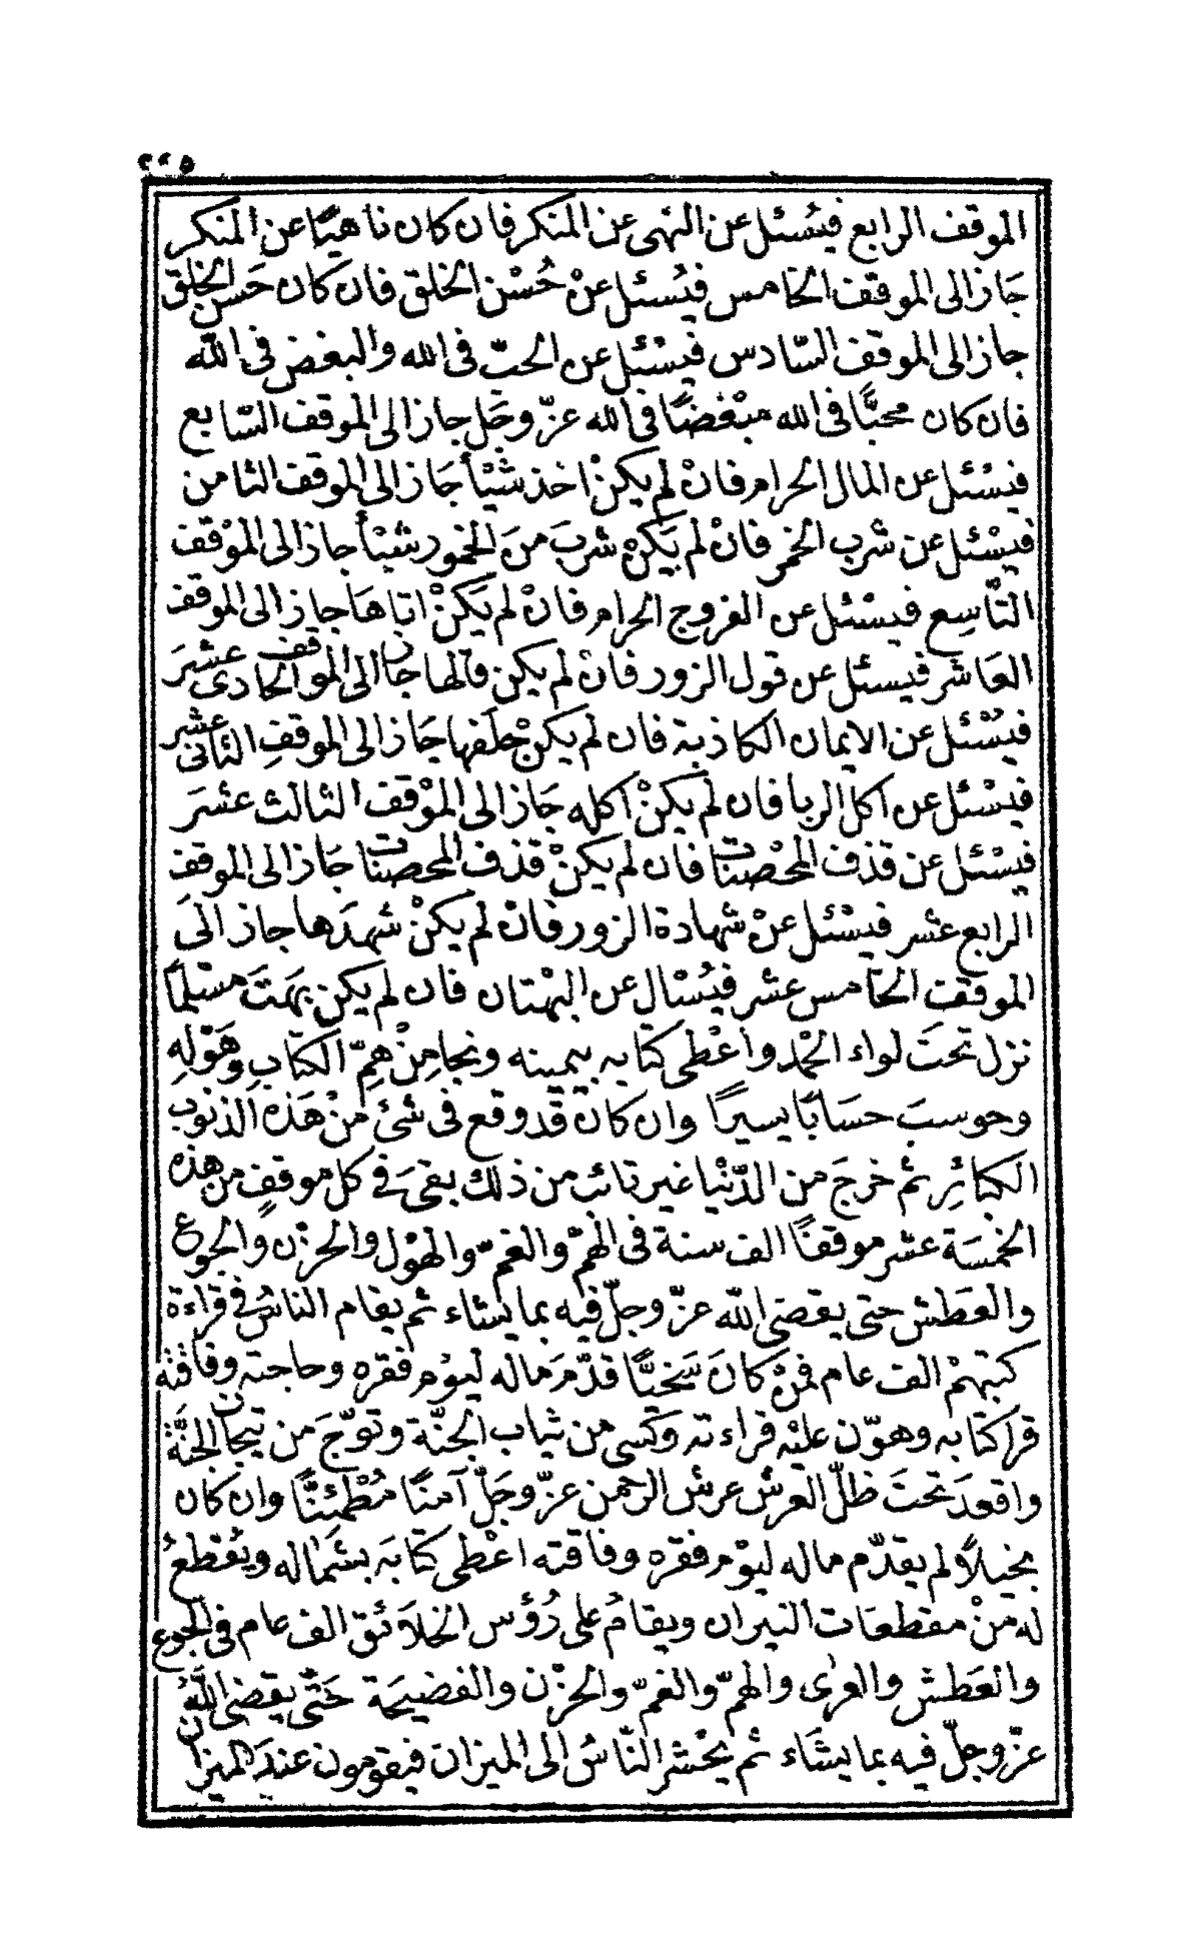 ٢٢٥
الموقف الرابع فيُسْئل عن النهى عن المنكر فان كان ناهيًا عن المنكر
جَاز الى الموقف الخامس فيُسئل عنْ حُسْن الخلق فان كان حَسن الخلق
جاز الى الموقف السّادس فيسْئل عن الحبّ فى الله والبغض فى الله
فان كان محبًّا فى الله مبْغضًا فى الله عزّ وجَل جاز الى الموقف السّابع
فيسْئل عن المال الحرام فانْ لم يكنْ اخذ شيْأ جَاز الى الموقف الثامن
فيسْئل عن شرب الخمر فانْ لم يَكنْ شربَ منَ الخمور شيْأ جاز الى الموْقف
التّاسِع فيسْئل عن الفروج الحرام فانْ لم يَكنْ اتاهَا جاز الى الموقف
العَاشر فيسئل عن قول الزور فانْ لم يكن قالها جاز الى الموقف الحادى عشرَ
فيُسْئل عن الايمان الكاذبة فان لم يكنْ حلَفها جَاز الى الموقفِ الثانى عشر
فيسْئل عن اكل الربا فان لم يكنْ اكله جَاز الى الموْقف الثالث عشرَ
فيسْئل عن قذف المحْصنات فان لم يكنْ قذف المحصنات جَاز الى الموقفِ
الرابع عشر فيسْئل عنْ شهادة الزور فانْ لم يكنْ شهدَها جاز الىَ
الموقف الخامس عشر فيُسْال عن البهْتان فان لم يكن بهَتَ مسْلمًا
نزل تحتَ لواء الحمْد واعْطى كتابه بيمينه ونجا مِنْ همِّ الكتابِ وهَوْلهِ
وحوسبَ حسَابًا يسيرًا وان كانَ قد وقع فى شئ منْ هَذه الذنوب
الكبَائِر ثم خرجَ من الدّنْيا غير تائب من ذلك بقىَ فى كل موقفٍ من هذه
الخمسَة عشر موقفًا الف سنة فى الهمّ والغمّ والهوْل والحزن والجوع
والعَطش حتى يقضى الله عزّ وجلّ فيه بما يشاء ثم يقام الناسُ فى قراءة
كتبهمْ الف عام فمنْ كانَ سَخيًّا قدّمَ ماله ليوْم فقره وحاجته وفاقته
قرا كتابه وهوّن عليْه قراءته وكسى من ثياب الجنّة وتوّجَ من تيجان الجنَّة
واقعدَ تحتَ ظلّ العرش عرش الرحمن عزّ وجَلّ آمنًا مُطْمئنًّا وان كان
بخيلاً ولم يقدّم ماله ليوْم فقره وفاقته اعْطى كتابَه بشمَاله ويُقطعُ
له منْ مقطعَات النيران ويقامُ على رُؤس الخلاَئق الف عام فى الجوع
والعَطش والعرى والهمّ والغمّ والحزْن والفضيحَة حَتّى يقضى اللّهُ
عزّ وجلّ فيه بما يشَاء ثم يحْشر النّاسُ الى الميزان فيقومون عندَ الميزان